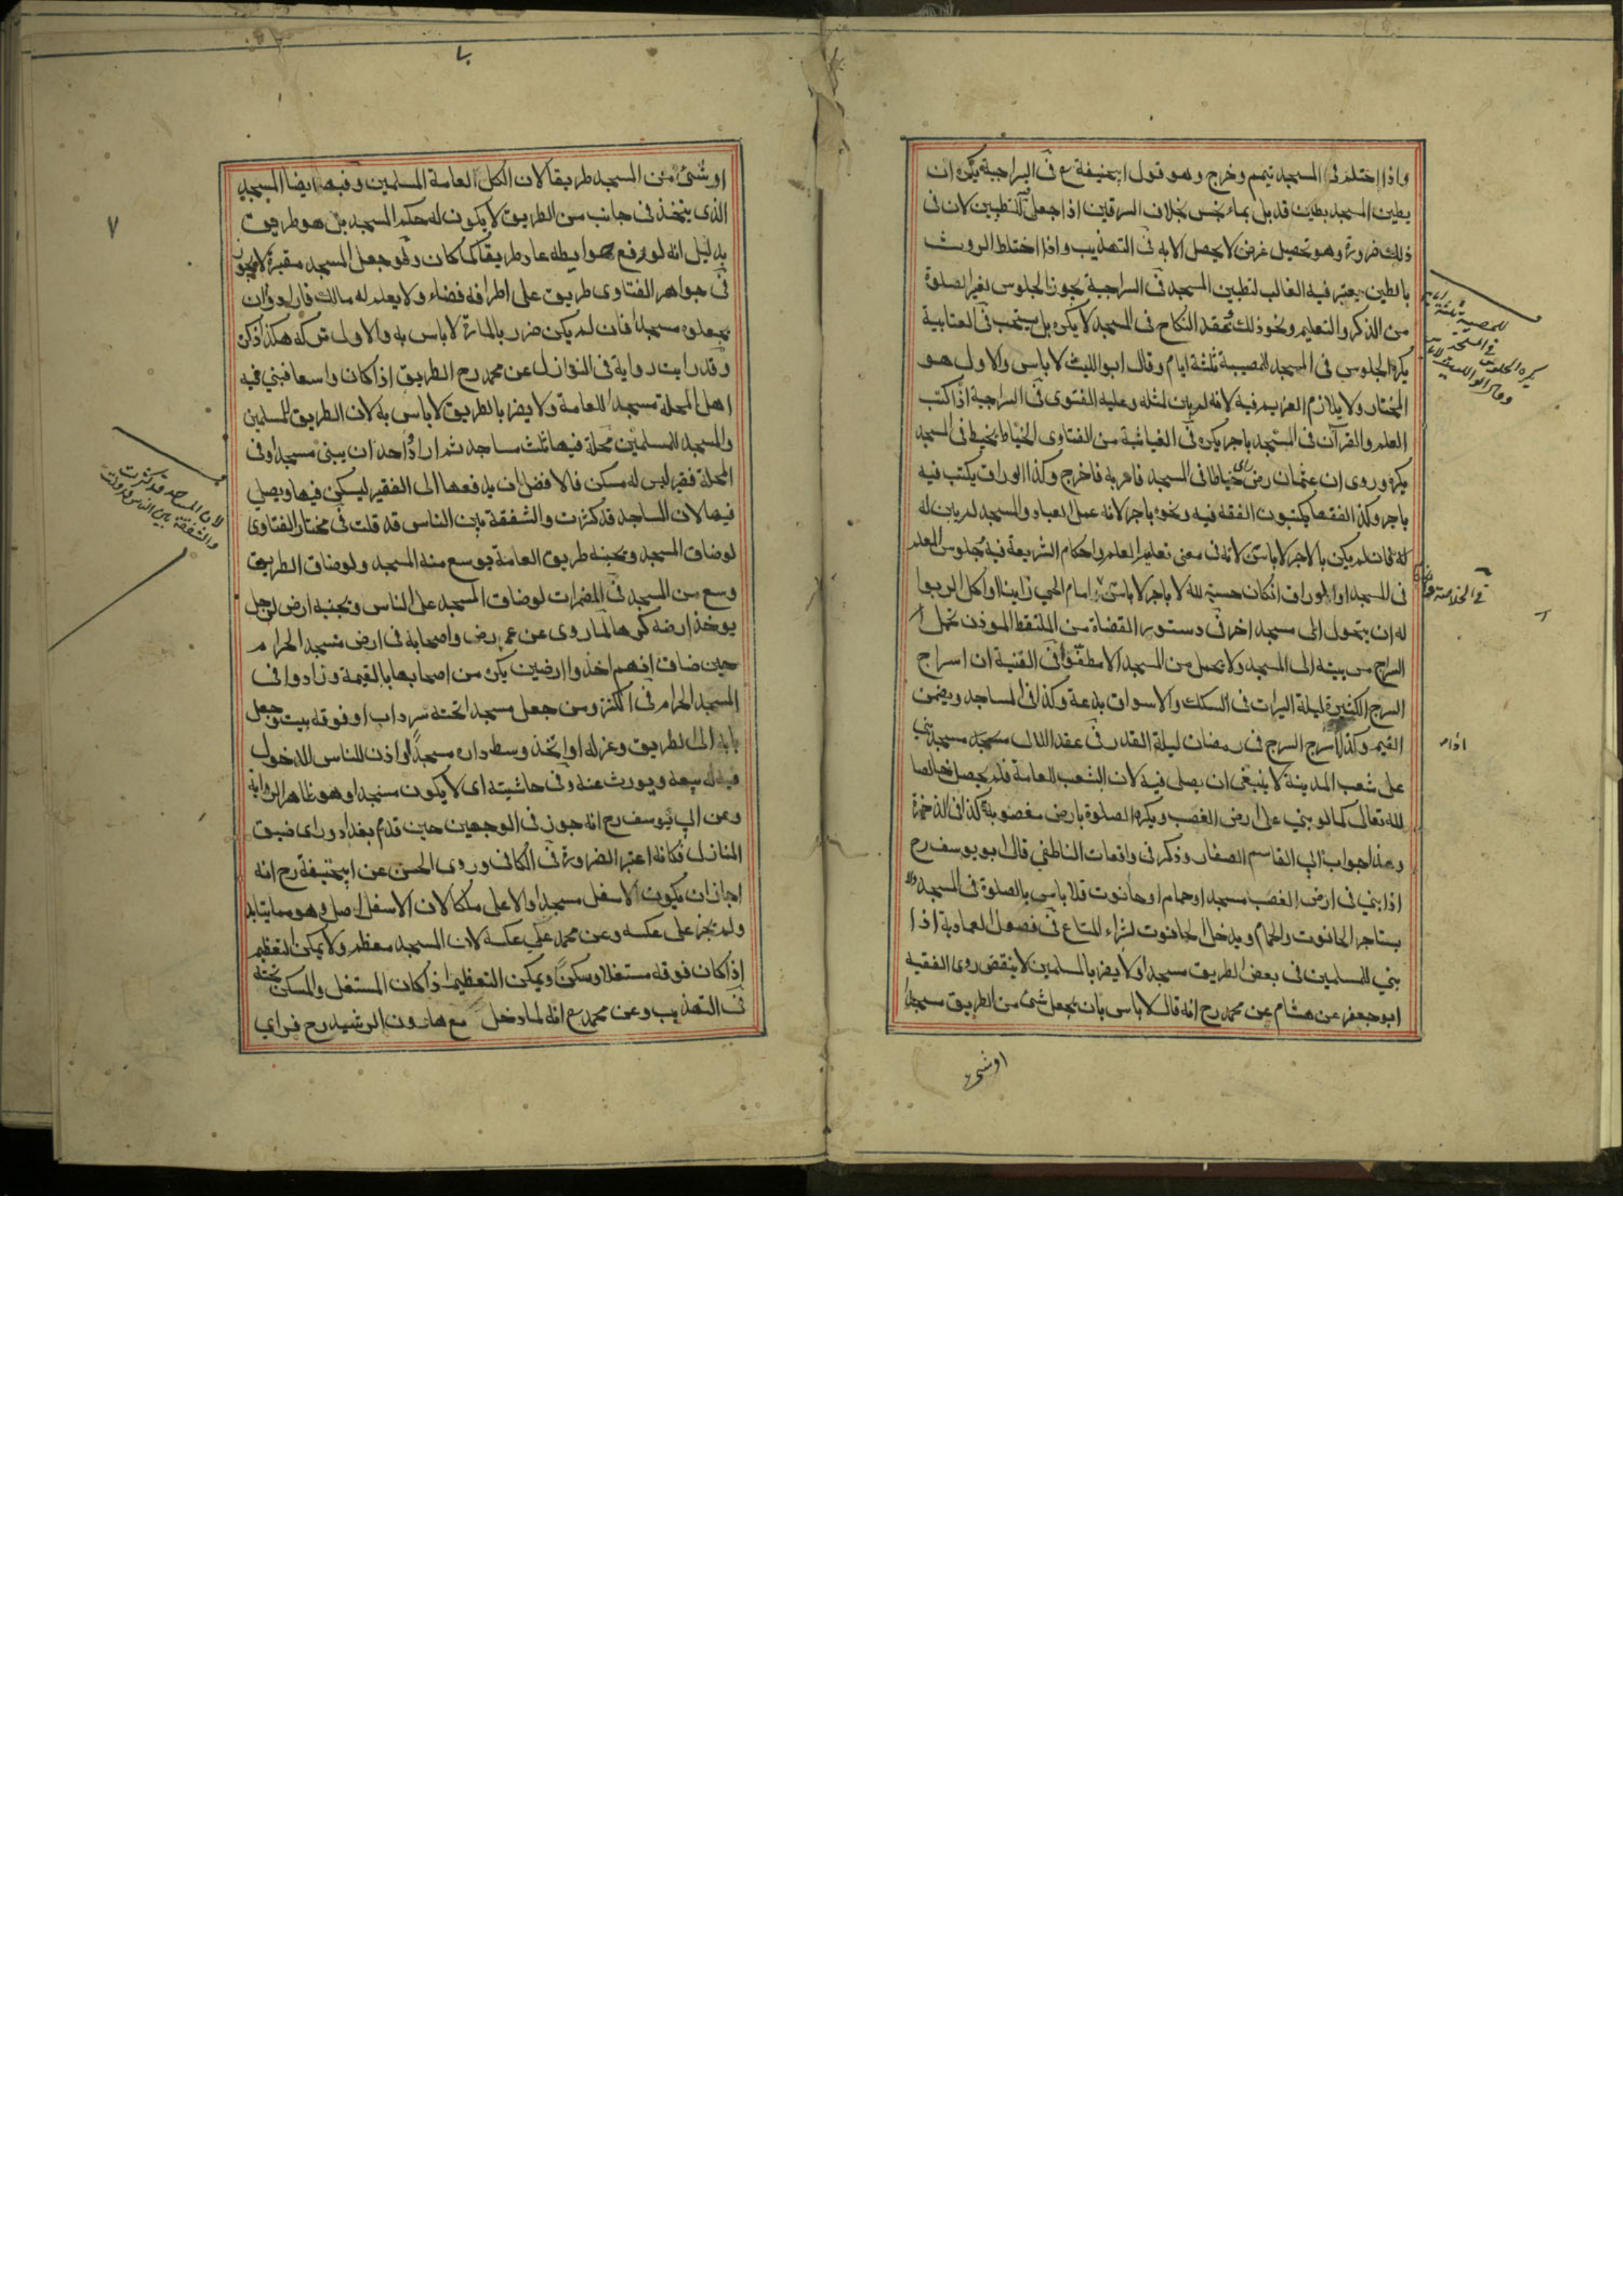 واذا احتلم فى المسجد تيمم وخرج وهو قول ابيحنيفة ع فى السراجية يكره ان
يطين المسجد بطين قد بل بماء نجس بخلاف السرقين اذا جعل للتطيين لان فى
ذلك ضرورة وهو تحصيل غرض لا يحصل الا به فى التهذيب واذا اختلط الروث
بالطين يعتبر فيه الغالب لتطيين المسجد فى السراجية يجوز الجلوس لغير الصلوة
من الذكر والتعليم ونحو ذلك عقد النكاح فى المسجد لا يكره بل يستحب فى العتابية
يكره الجلوس فى المسجد للمصيبة ثلثة ايام وقال ابو الليث لا باس والاول هو
المختار ولا يلازم الغريم فيه لانه لم يبن لمثله وعليه الفتوى فى السراجية اذا كتب
العلم والقرآن فى المسجد باجر يكره فى الغياثية من الفتاوى الخياط يخيط فى المسجد
يكره وروى ان عثمان رض راى خياطا فى المسجد فامر به فاخرج وكذا الوراق يكتب فيه
باجر وكذا الفقها يكتبون الفقه فيه ونحوه باجر لانه عمل العباد والمسجد لم يبن له
له فان لم يكن بالاجر لا باس لانه فى معنى تعليم العلم واحكام الشريعة فيه جلوس المعلم
فى المسجد او الوراق ان كان حسبة لله لا باجر لا باس امام الحى زانيا او اكل الربوا
له ان يتحول الى مسجد اخر فى دستور القضاة من الملتقط الموذن تحمل
السراج من بيته الى المسجد ولا يحمل من المسجد الا مطفؤا فى القنية ان اسراج
السرج الكثيرة ليلة البرات فى السكك والاسواق بدعة وكذا فى المساجد ويضمن
القيم وكذا لا سرج السرج فى رمضان ليلة القدر فى عقد اللال مسجد بني
على شعب المدينة لا ينبغى ان يصلى فيه لان الشعب للعامة فلم يحصل خالصا
لله تعالى كما لو بني على ارض الغصب ويكره الصلوة بارض مغصوبة كذا فى الذخيرة
وهذا جواب ابي القاسم الصفار وذكر فى واقعات الناطفي قال ابو يوسف رح
اذا بني فى ارض الغصب مسجد او حمام او حانوت فلا باس بالصلوة فى المسجد ولا
يستاجر الحانوت والحمام ويدخل الحانوت لشراء المتاع فى فصول العمادية اذا
بني للمسلمين فى بعض الطريق مسجد ولا يضر بالمسلمين لا ينقض روى الفقيه
ابو جعفر عن هشام عن محمد رح انه قال لا باس بان يجعل شئ من الطريق مسجدا
اوشئ
للمصيبة ثلثة ايام
يكره الجلوس فى المسجد
وقال ابو الليث لا باس
فى الخلاصة
اذا
او شئ من المسجد طريقا لان الكل لعامة المسلمين وفيه ايضا المسجد
الذى يتخذ فى جانب من الطريق لا يكون له حكم المسجد بل هو طريق
بدليل انه لو رفع حوايطه عاد طريقا كما كان ولو جعل المسجد مقبرة لا يجوز
فى جواهر الفتاوى طريق على اطرافه فضاء ولا يعلم له مالك فارادوا ان
يجعلوه مسجدا فان لم يكن ضرر بالمارة لا باس به والاولى تركه هكذا ذكر
وقد رايت رواية فى النوازل عن محمد رح الطريق اذا كان واسعا فبني فيه
اهل المحلة مسجدا للعامة ولا يضر بالطريق لا باس به لان الطريق للمسلمين
والمسجد للمسلمين محلة فيها ثلث مساجد ثم اراد احد ان يبني مسجدا وفى
المحلة فقير ليس له مسكن فالا فضل ان يدفعها الى الفقير ليسكن فيها ويصلي
فيها لان المساجد قد كثرت والشفقة بين الناس قد قلت فى مختار الفتاوى
لو ضاق المسجد وبجنبه طريق العامة يوسع منه المسجد ولو ضاق الطريق
وسع من المسجد فى المضمرات لو ضاق المسجد على الناس وبجنبه ارض لرجل
يوخذ ارضه كرها لما روى عن عمر رض واصحابه فى ارض مسجد الحرام
حين ضاق انهم اخذوا ارضين بكره من اصحابها بالقيمة وزادوا فى
المسجد الحرام فى الكنز ومن جعل مسجدا تحته سرداب او فوقه بيت وجعل
بابه الى الطريق وعزله او اتخذ وسط داره مسجدا واذن للناس للدخول
فيه له بيعه ويورث عنه وفى حاشيته اى لا يكون مسجدا وهو ظاهر الرواية
وعن ابي يوسف رح انه جوز فى الوجهين حين قدم بغداد وراى ضيق
المنازل فكانه اعتبر الضرورة فى الكافى وروى الحسن عن ابيحنيفة رح انه
اجاز ان يكون الاسفل مسجدا والاعلى ملكا لان الاسفل اصل وهو مما يتابد
ولم يجز على عكسه وعن محمد على عكسه لان المسجد معظم ولا يمكن تعظيم
اذا كان فوقه مستغلا ومسكنا ويمكن التعظيم اذا كان المستغل والمسكن تحته
فى التهذيب وعن محمد ع انه لما دخل مع هارون الرشيد رح فراي
لان المساجد قد كثرت
والشفقة بين الناس قد قلت
٧